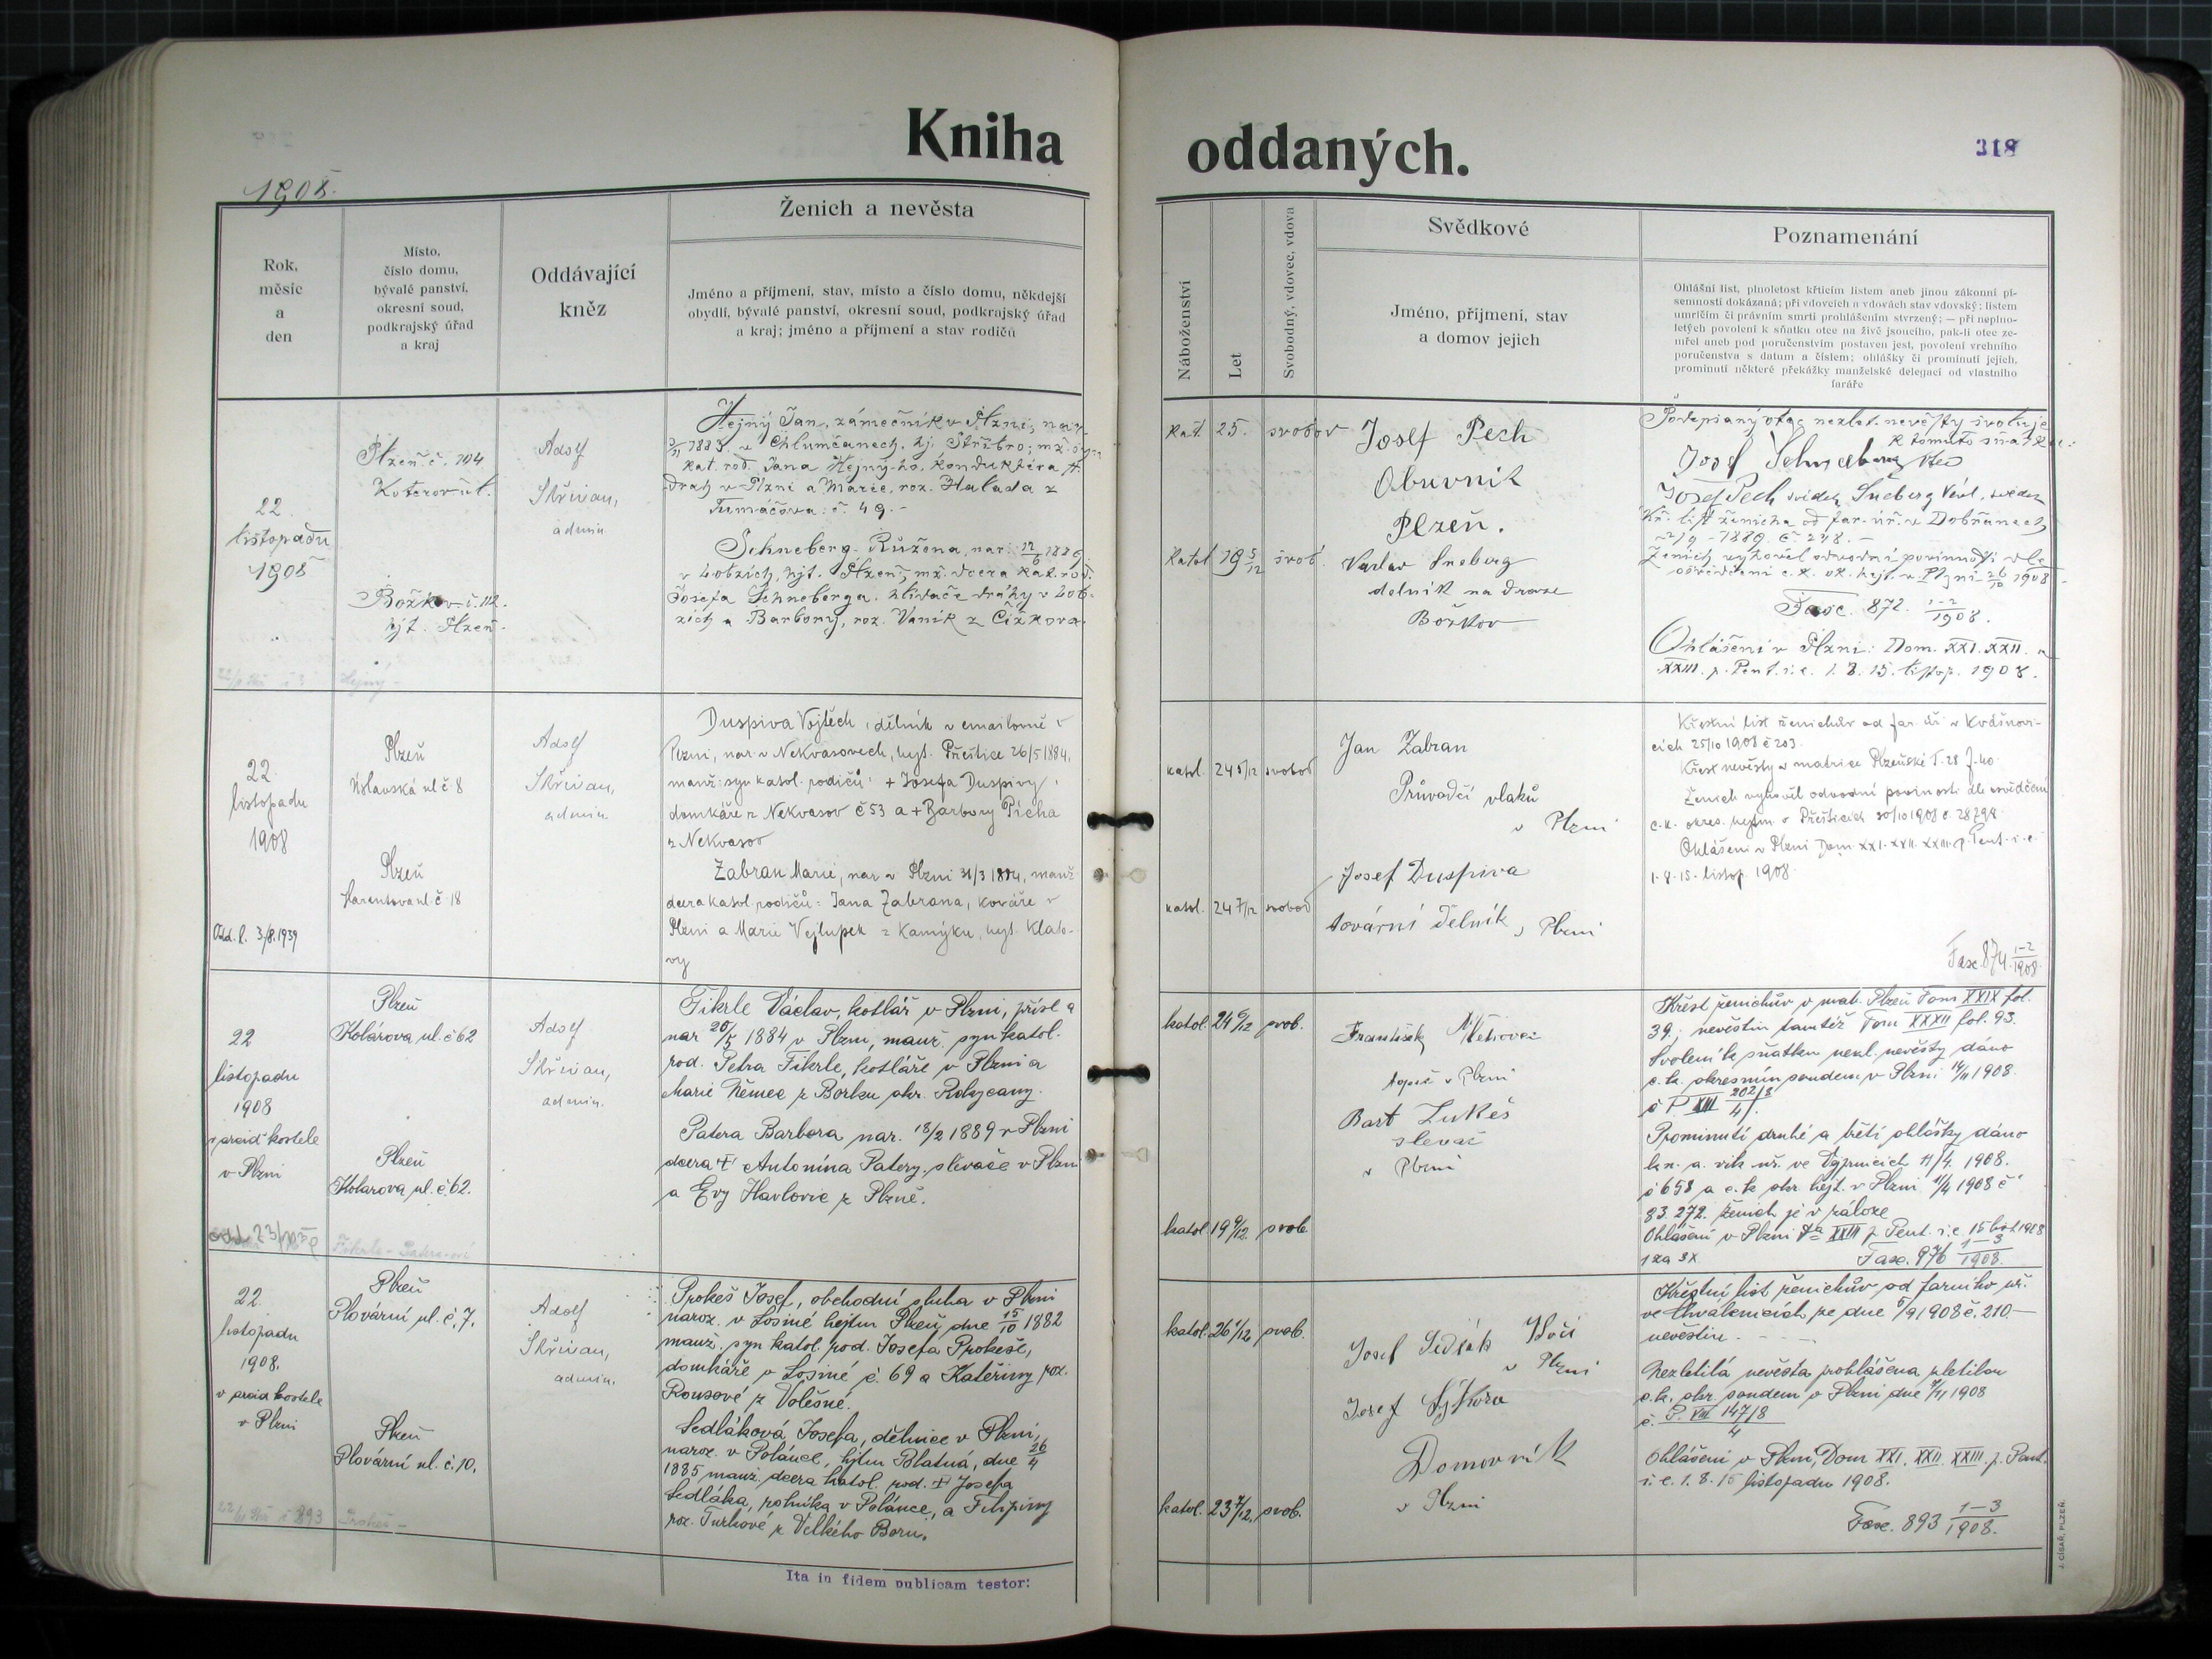 Kniha oddaných.
318
1908.
Rok, měsíc a den
Místo, číslo domu, bývalé panství, okresní soud, podkrajský úřad a kraj
Oddávající kněz
Ženich a nevěsta
Jméno a příjmení, stav, místo a číslo domu, někdejší
obydlí, bývalé panství, okresní soud, podkrajský úřad
a kraj; jméno a příjmení a stav rodičů
Náboženství
Let
Svobodný, vdovec, vdova
Svědkové
Jméno, příjmení, stav
a domov jejich
Poznamenání
Ohlášní list, plnoletost křticím listem aneb jinou zákonní pí-
semností dokázaná; při vdovcích a vdovách stav vdovský; listem
umrlčím či právním smrti prohlášením stvrzený; — při neplno-
letých povolení k sňatku otce na živě jsoucího, pak-li otec ze-
mřel aneb pod poručenstvím postaven jest, povolení vrchního
poručenstva s datum a číslem; ohlášky či prominutí jejich,
prominutí některé překážky manželské delegací od vlastního
faráře
22.
listopadu
1908
Plzeň č. 104
Koterov. ul.
Božkov č. 112.
hjt. Plzeň.
Adolf
Skřivan,
admin.
Hejný Jan, zámečník v Plzni, nar.
1883 v Chlumčanech, hj. Stříbro; mž. syn
kat. rod. Jana Hejný-ho, konduktéra
drah v Plzni a Marie, roz. Halada z
č. 49.
Schneberg Růžena, nar. 1889
v Lobzích, hjt. Plzeň, mž. dcera kat. rod.
Josefa Schneberga, hlídače dráhy v Lob-
zích a Barbory, roz. Vaník z Čižkova.
kat. 25. svobod
katol 19 5/12 svob.
Josef Pech
Obuvník
Plzeň.
Václav Šneberg
dělník na draze
Božkov
Podepsaný otec nezlet. nevěsty svoluje
k tomuto sňatku:
Josef Pech svědek Šneberg Václ. svědek
Kř. list ženicha od far. úř. v Dobřanech
č. 248.
Ženich vyhověl odvodní povinnosti dle
osvědčení c. k. ok. hejt. v Plzni 26/10 1908
Fasc. 872. 1-2/1908.
Ohlášeni v Plzni: Dom. XXI. XXII. a
XXIII. p. Pent. i. e. 1. 8. 15. listop. 1908.
22
listopadu
1908
Odd. l. 3/8. 1939
Plzeň
Úslavská ul č 8
Plzeň
ul. č 18
Adolf
Skřivan,
admin.
Duspiva Vojtěch, dělník v emailovně v
Plzni, nar. v Nekvasovech, hejt. Přeštice 26/5 1884,
manž. syn katol. rodičů: + Josefa Duspivy,
domkáře z Nekvasov č 53 a + Barbory Pícha
z Nekvasov
Zabran Marie, nar v Plzni 31/3 1884, manž
dcera katol. rodičů: Jana Zabrana, kováře v
Plzni a Marie Vejlupek z Kamýku, hejt. Klato-
vy
katol. 24 5/12 svobod
katol. 24 7/12 svobod
Jan Zabran
Průvodčí vlaků
v Plzni
Josef Duspiva
tovární dělník, Plzni
Křestní list ženichův od far. úř. v Kvášňovi-
cích 25/10 1908 č 203.
Křest nevěsty v matrice Plzeňské T. 28 F. 40
Ženich vyhověl odvodní povinnosti dle osvědčení
c. k. okres. hejtm. v Přešticích 30/10 1908 č. 28794
Ohlášeni v Plzni Dom XXI. XXII. XXIII. p. Pent. i. e.
1. 8. 15. listop. 1908
Fasc. 874. 1-2/1908.
22
listopadu
1908
v arcid kostele
v Plzni
Plzeň
Kolárova ul. č 62
Plzeň
Kolarova ul. č. 62.
Adolf
Skřivan,
admin.
Fikrle Václav, kotlář v Plzni, přísl. a
nar 20/5 1884 v Plzni, manž. syn katol.
rod. Petra Fikrle, kotláře v Plzni a
Marie Němec z Borku okr. Rokycany.
Patera Barbora nar. 18/2 1889 v Plzni
dcera + Antonína Patery, slévače v Plzni
a Evy Havlovic z Plzně.
katol. 24 6/12 svob.
katol. 19 9/12 svob.
František
topič v Plzni
Bart Lukeš
slevač
v Plzni
Křest ženichův v mat. Plzeň Tom XXIX fol.
39; nevěstin tamtéž Tom XXXII fol. 93.
Svolení k sňatku nezl. nevěsty dáno
c. k. okresním soudem v Plzni 14/11 1908.
č P XIII 202/8 4/.
Prominutí druhé a třetí ohlášky dáno
č 658 a c. k. okr. hejt. v Plzni 11/4 1908 č
83.272. Ženich je v záloze
Ohlášeni v Plzni XXIII p. Pent. i. e. 15 list 1908
1 za 3x
Fasc. 876 1-3/1908.
22.
listopadu
1908.
v arcid kostele
v Plzni
Plzeň
Plovární ul. č. 7.
Plzeň
Plovární ul. č. 10.
Adolf
Skřivan,
admin.
Prokeš Josef, obchodní sluha v Plzni
naroz. v Losiné hejtm Plzeň, dne 15/10 1882
manž. syn katol. rod. Josefa Prokeše,
domkáře v Losiné č. 69 a Kateřiny roz.
Rousové z Volešné.
Sedláková Josefa, dělnice v Plzni,
naroz. v Polánce, hjtm Blatná, dne 26/4
1885, manž. dcera katol. rod. + Josefa
Sedláka, rolníka v Polánce, a Filipiny
roz. Turkové z Velkého Boru.
katol. 26 1/12 svob.
katol. 23 7/12. svob.
Josef Sedlák Kočí
v Plzni
Josef Sýkora
Domovník
v Plzni
Křestní list ženichův od farního úř.
ve Chválenicích ze dne 1908 č. 210.—
nevěstin
Nezletilá nevěsta prohlášena zletilou
c. k. okr. soudem v Plzni dne 7/11 1908
č. P. VIII 147/8 4
Ohlášeni v Plzni, Dom XXI. XXII. XXIII. p. Pent.
i. e. 1. 8. 15 listopadu 1908.
Fasc. 893 1-3/1908.
Ita in fidem publicam testor:
J. CÍSAŘ, PLZEŇ.